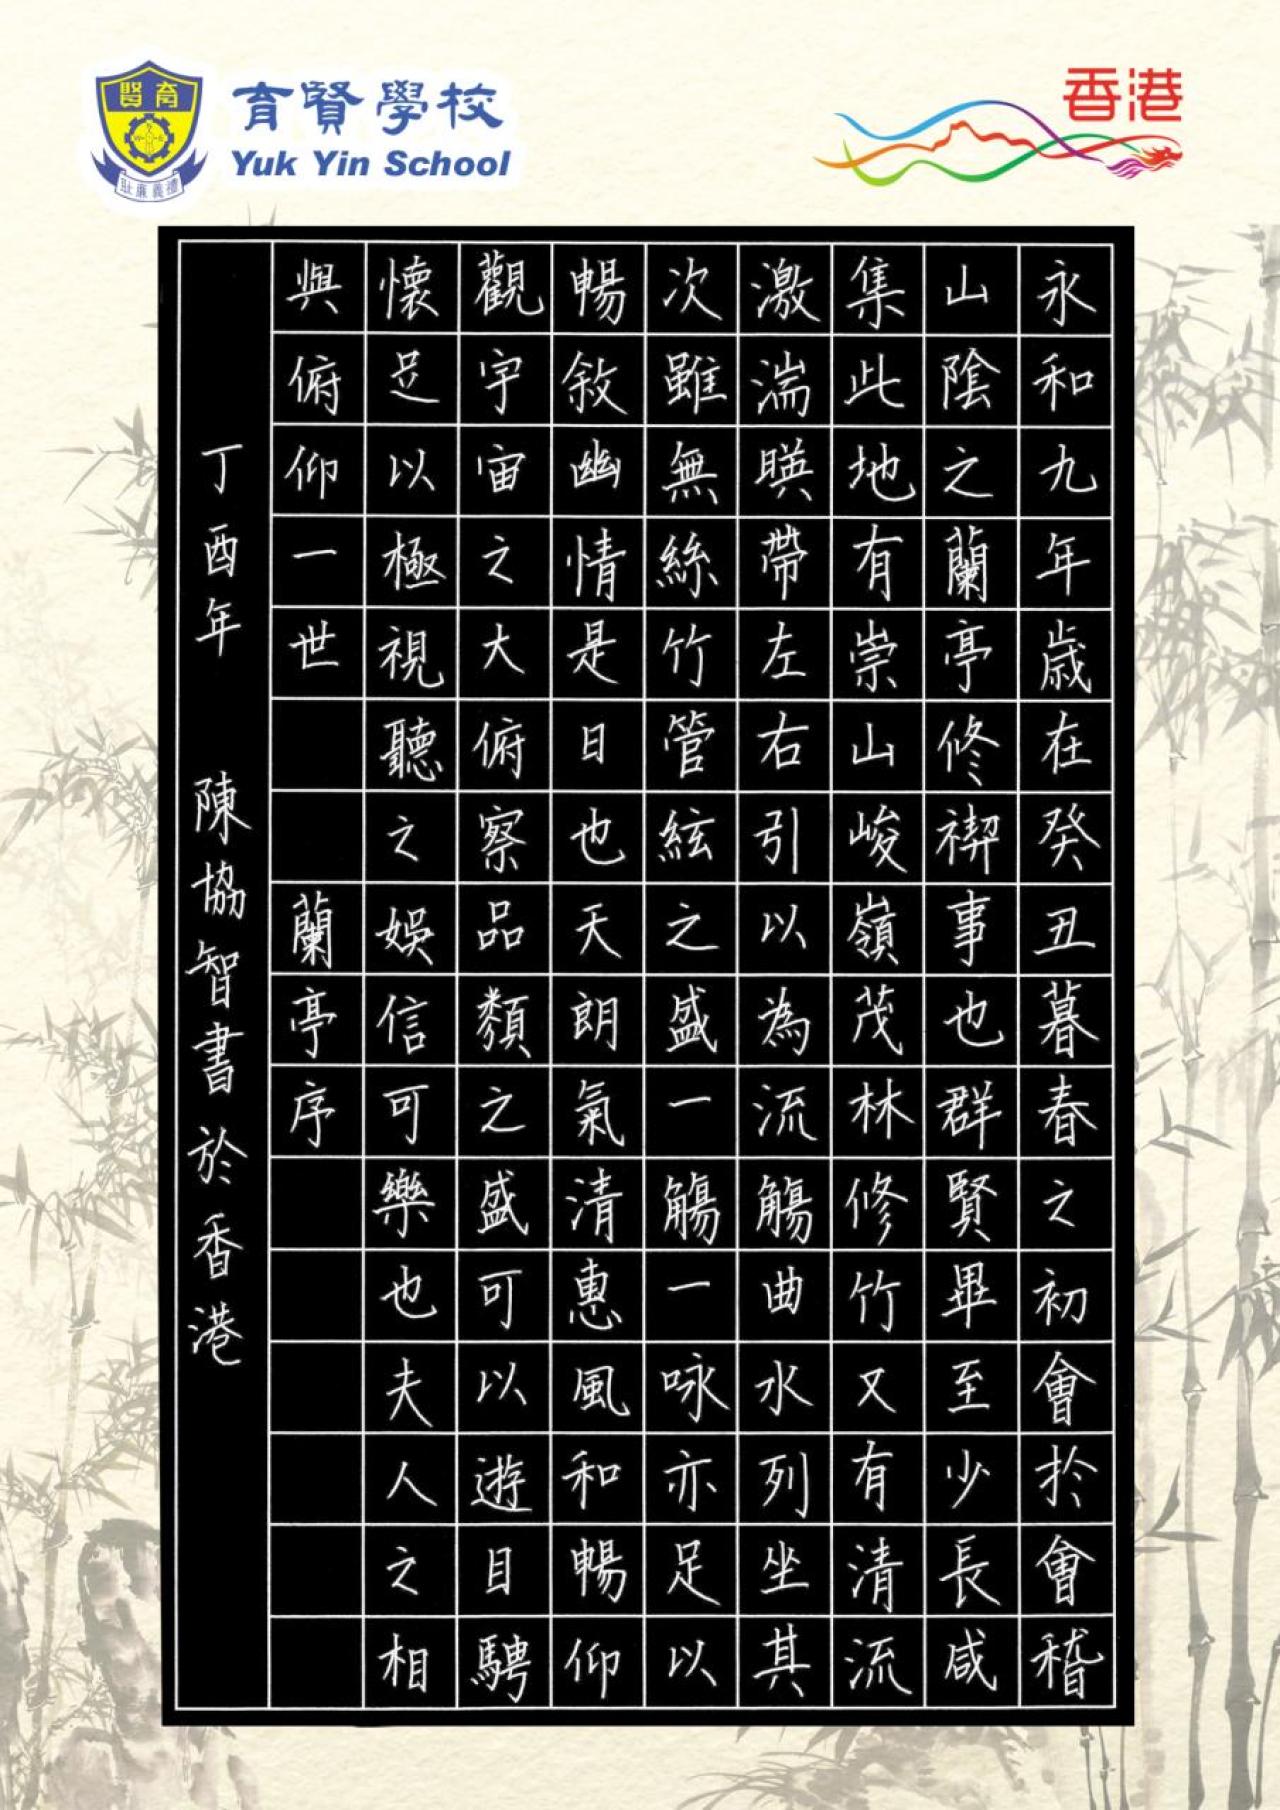 育賢
禮義廉耻
育賢學校
Yuk Yin School
香港
永和九年歲在癸丑暮春之初會於會稽
山陰之蘭亭修禊事也群賢畢至少長咸
集此地有崇山峻嶺茂林修竹又有清流
激湍暎帶左右引以為流觴曲水列坐其
次雖無絲竹管絃之盛一觴一咏亦足以
暢敘幽情是日也天朗氣清惠風和暢仰
觀宇宙之大俯察品類之盛可以遊目騁
懷足以極視聽之娛信可樂也夫人之相
與俯仰一世 蘭亭序
丁酉年 陳協智書於香港